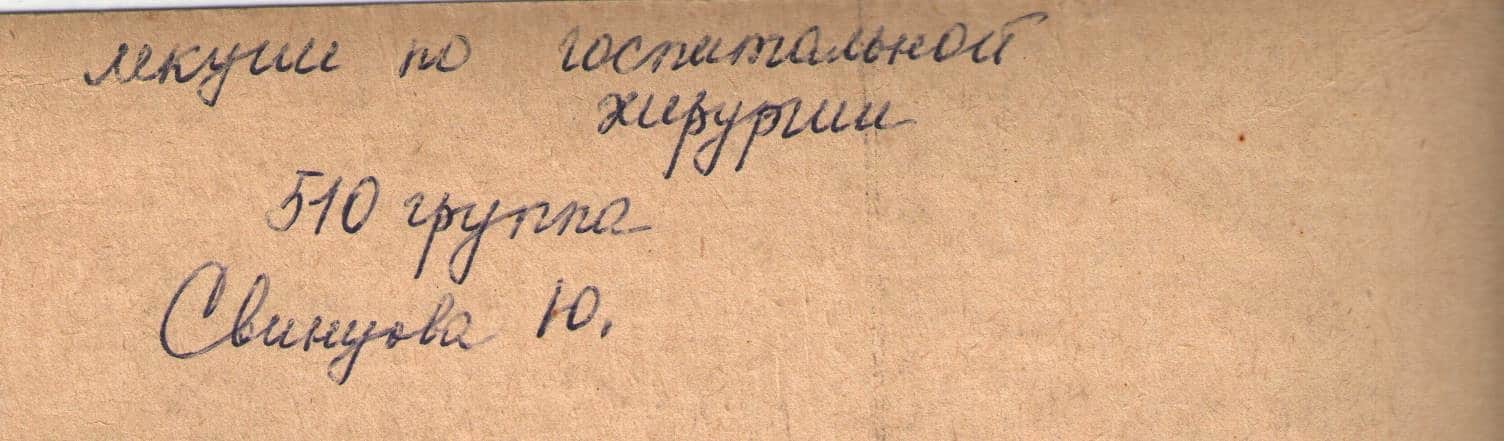 лекции по госпитальной
хирургии
510 группа
Свинцова Ю.